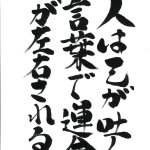 人は己が吐
言葉で運命
が左右される